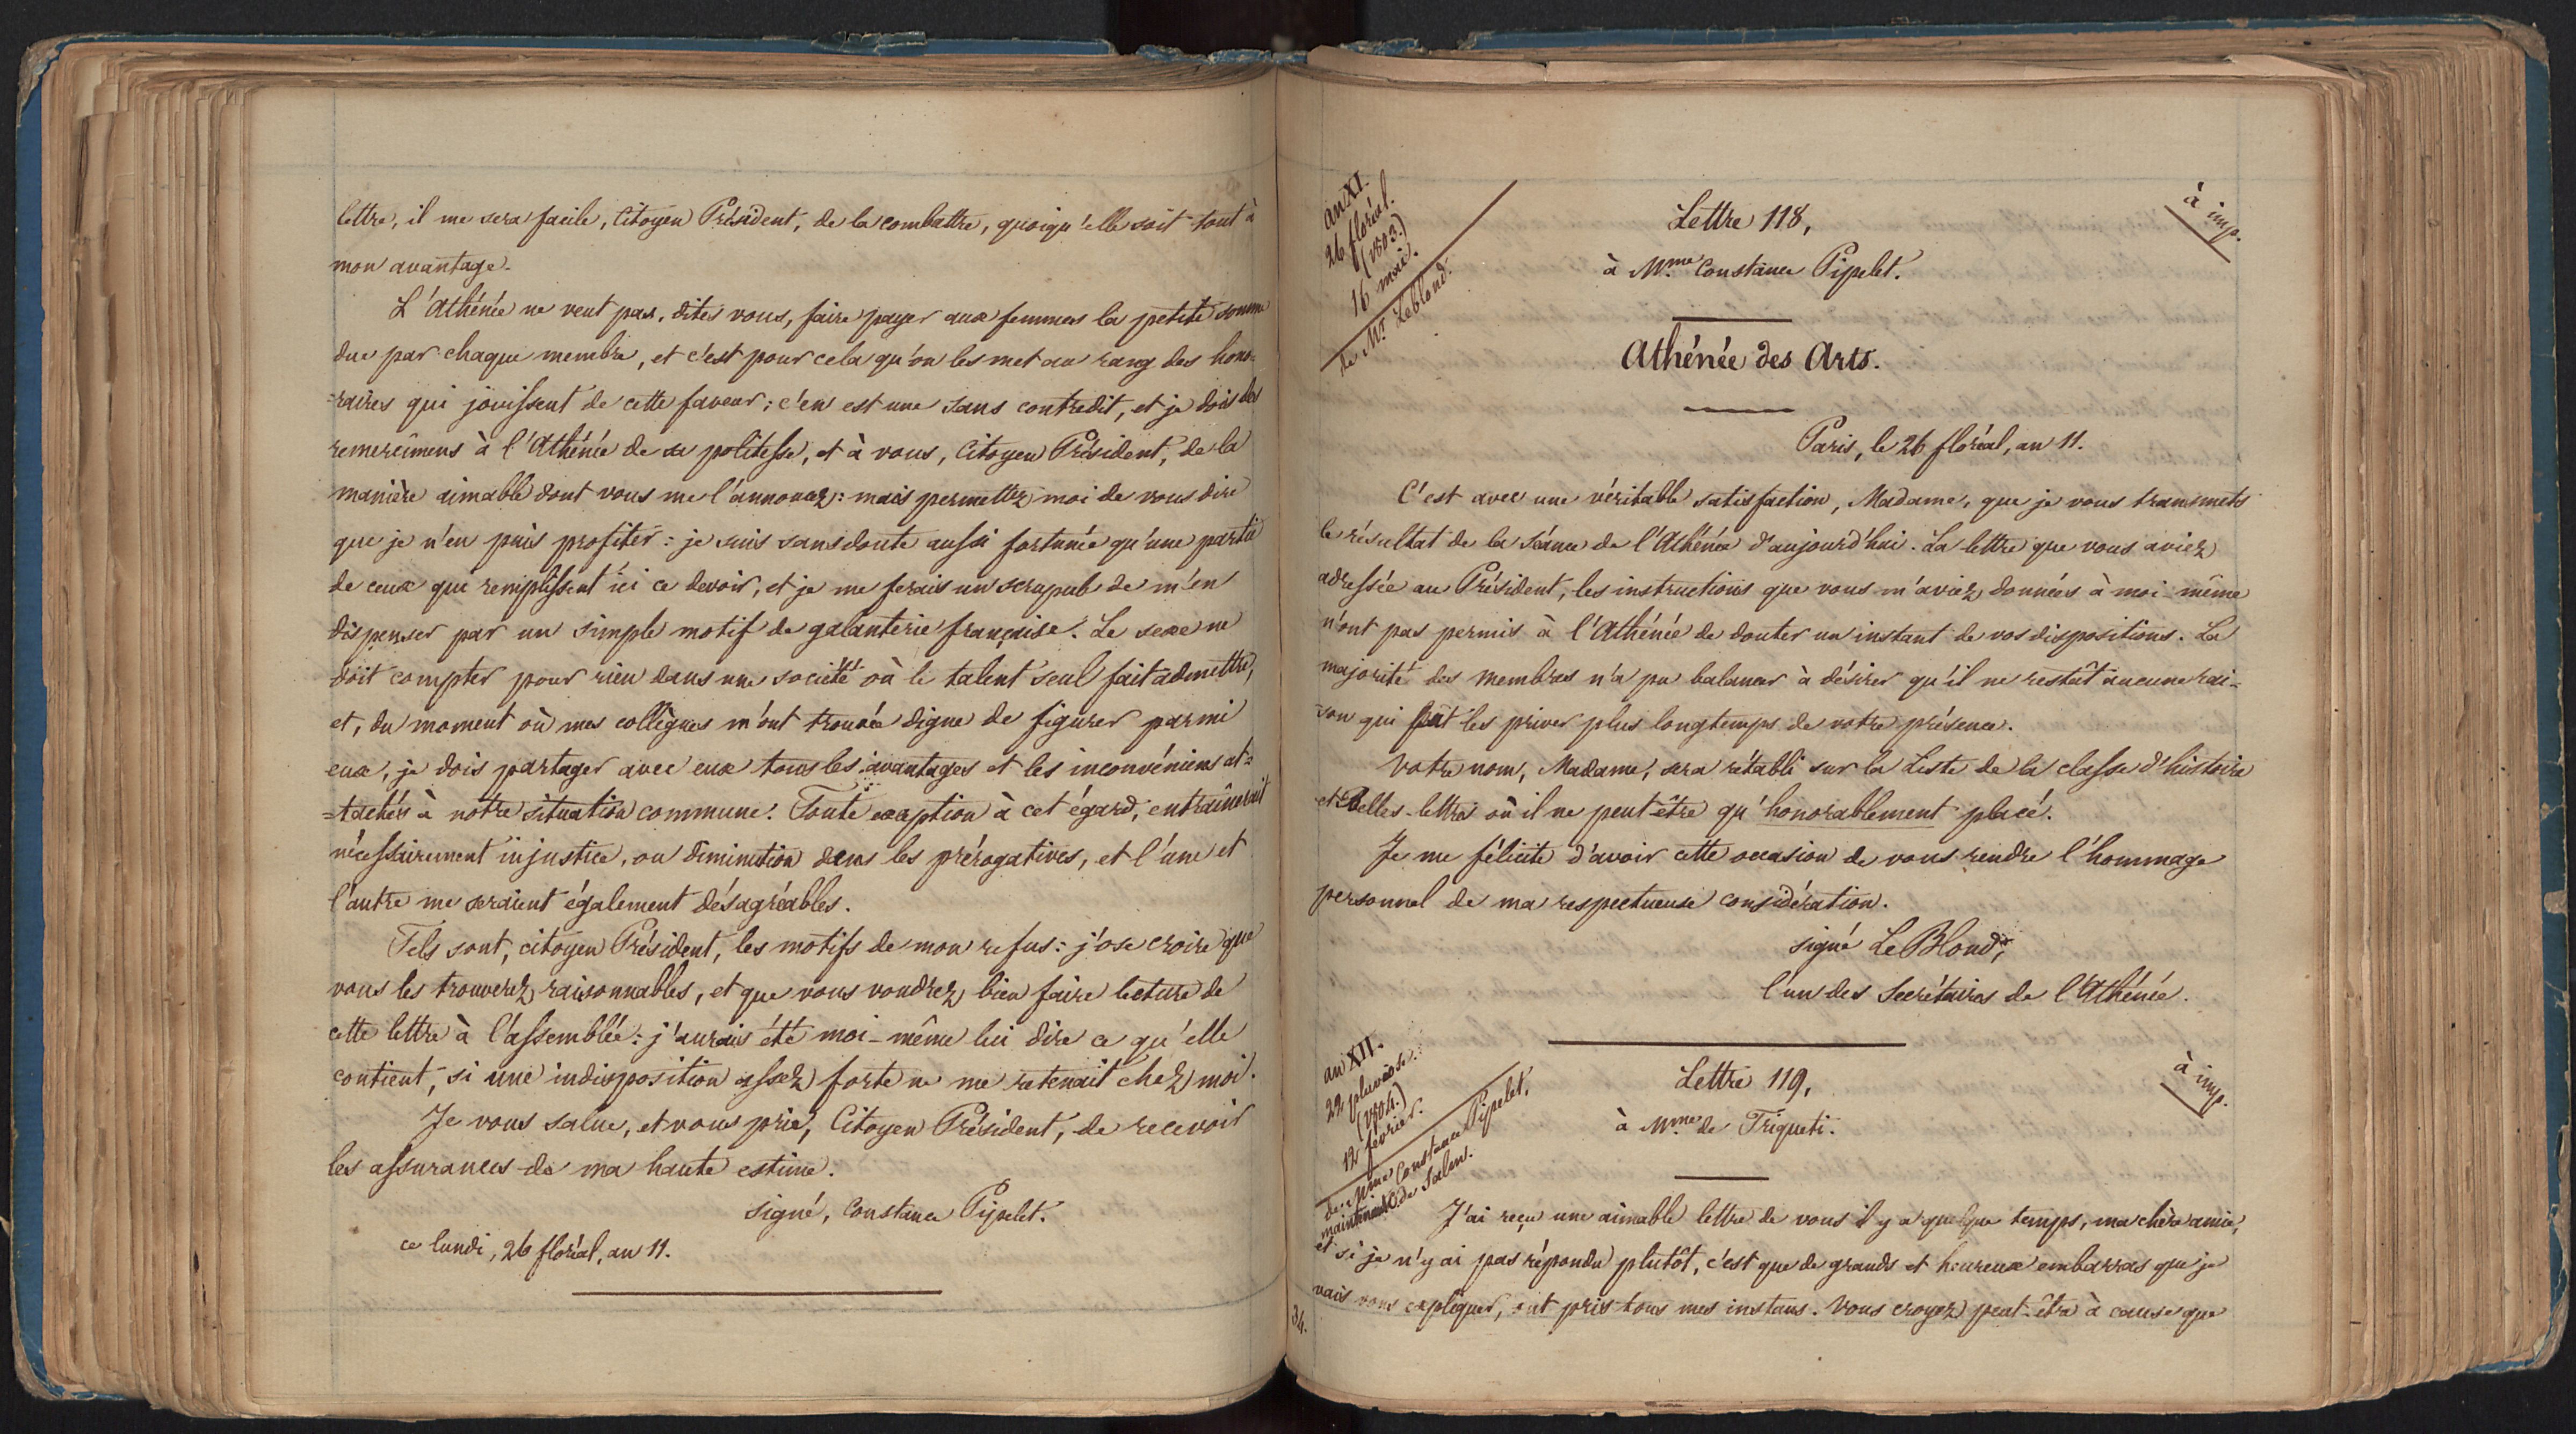 lettre, il me sera facile, Citoyen Président, de la combattre, quoiqu'elle soit tout à
mon avantage.
L'Athénée ne veut pas, dites vous, faire payer aux femmes la petite somme
due par chaque membre, et c'est pour cela qu'on les met au rang des hono=
=raires qui jouissent de cette faveur; c'en est une sans contredit, et je dois des
remercîmens à l'Athénée de sa politesse, et à vous, Citoyen Président, de la
manière aimable dont vous me l'annoncez: mais permettez moi de vous dire
que je n'en puis profiter: je suis sans doute aussi fortunée qu'une partie
de ceux qui remplissent ici ce devoir, et je me ferais un scrupule de m'en
dispenser par un simple motif de galanterie française. Le sexe ne
doit compter pour rien dans une société où le talent seul fait admettre,
et, du moment où mes collègues m'ont trouvée digne de figurer parmi
eux, je dois partager avec eux tous les avantages et les inconvéniens at=
=tachés à notre situation commune. Toute exception à cet égard, entraînerait
nécessairement injustice, ou diminution dans les prérogatives, et l'une et
l'autre me seraient également désagréables.
Tels sont, citoyen Président, les motifs de mon refus: j'ose croire que
vous les trouverez raisonnables, et que vous voudrez bien faire lecture de
cette lettre à l'assemblée: j'aurais été moi-même lui dire ce qu'elle
contient, si une indisposition assez forte ne me retenait chez moi.
Je vous salue, et vous prie, Citoyen Président, de recevoir
les assurances de ma haute estime.
signé, Constance Pipelet.
ce lundi, 26 floréal, an 11.
an XI.
26 floréal.
(1803.)
16 mai.
de Mr. Leblond.
à imp.
Lettre 118,
à Mme. Constance Pipelet.
Athénée des Arts.
Paris, le 26 floréal, an 11.
C'est avec une véritable satisfaction, Madame, que je vous transmets
le résultat de la séance de l'Athénée d'aujourd'hui. La lettre que vous aviez
adressée au Président, les instructions que vous m'aviez données à moi-même
n'ont pas permis à l'Athénée de douter un instant de vos dispositions. La
majorité des membres n'a pu balancer à désirer qu'il ne restât aucune rai=
son qui pût les priver plus longtemps de votre présence.
Votre nom, Madame, sera rétabli sur la Liste de la classe d'histoire
et Belles-lettres où il ne peut être qu'honorablement placé.
Je me félicite d'avoir cette occasion de vous rendre l'hommage
personnel de ma respectueuse considération.
signé Le Blond,
l'un des Secrétaires de l'Athénée.
an XII.
22 pluviôse.
(1804.)
12 février.
de Mme Constance Pipelet,
maintenant C. de Salm.
à imp.
Lettre 119,
à Mme de Triqueti.
J'ai reçu une aimable lettre de vous il y a quelque temps, ma chère amie,
et si je n'y ai pas répondu plutôt, c'est que de grands et heureux embarras que je
vais vous expliquer, ont pris tous mes instans. Vous croyez peut-être à cause que
34.